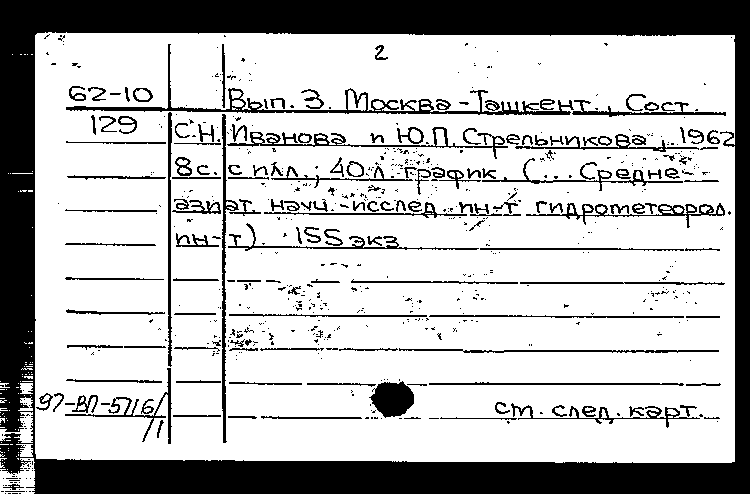 2
62-10 Вып. 3. Москва - Ташкент., Сост.
129 С.Н. Иванова и Ю.П. Стрельникова, 1962
8 с. с илл.; 40 л. график. (... Средне-
азиат. научн.-исслед. ин-т гидрометеорол.
ин-т). 155 экз
97-ВП-5716/
/1 см. след. карт.